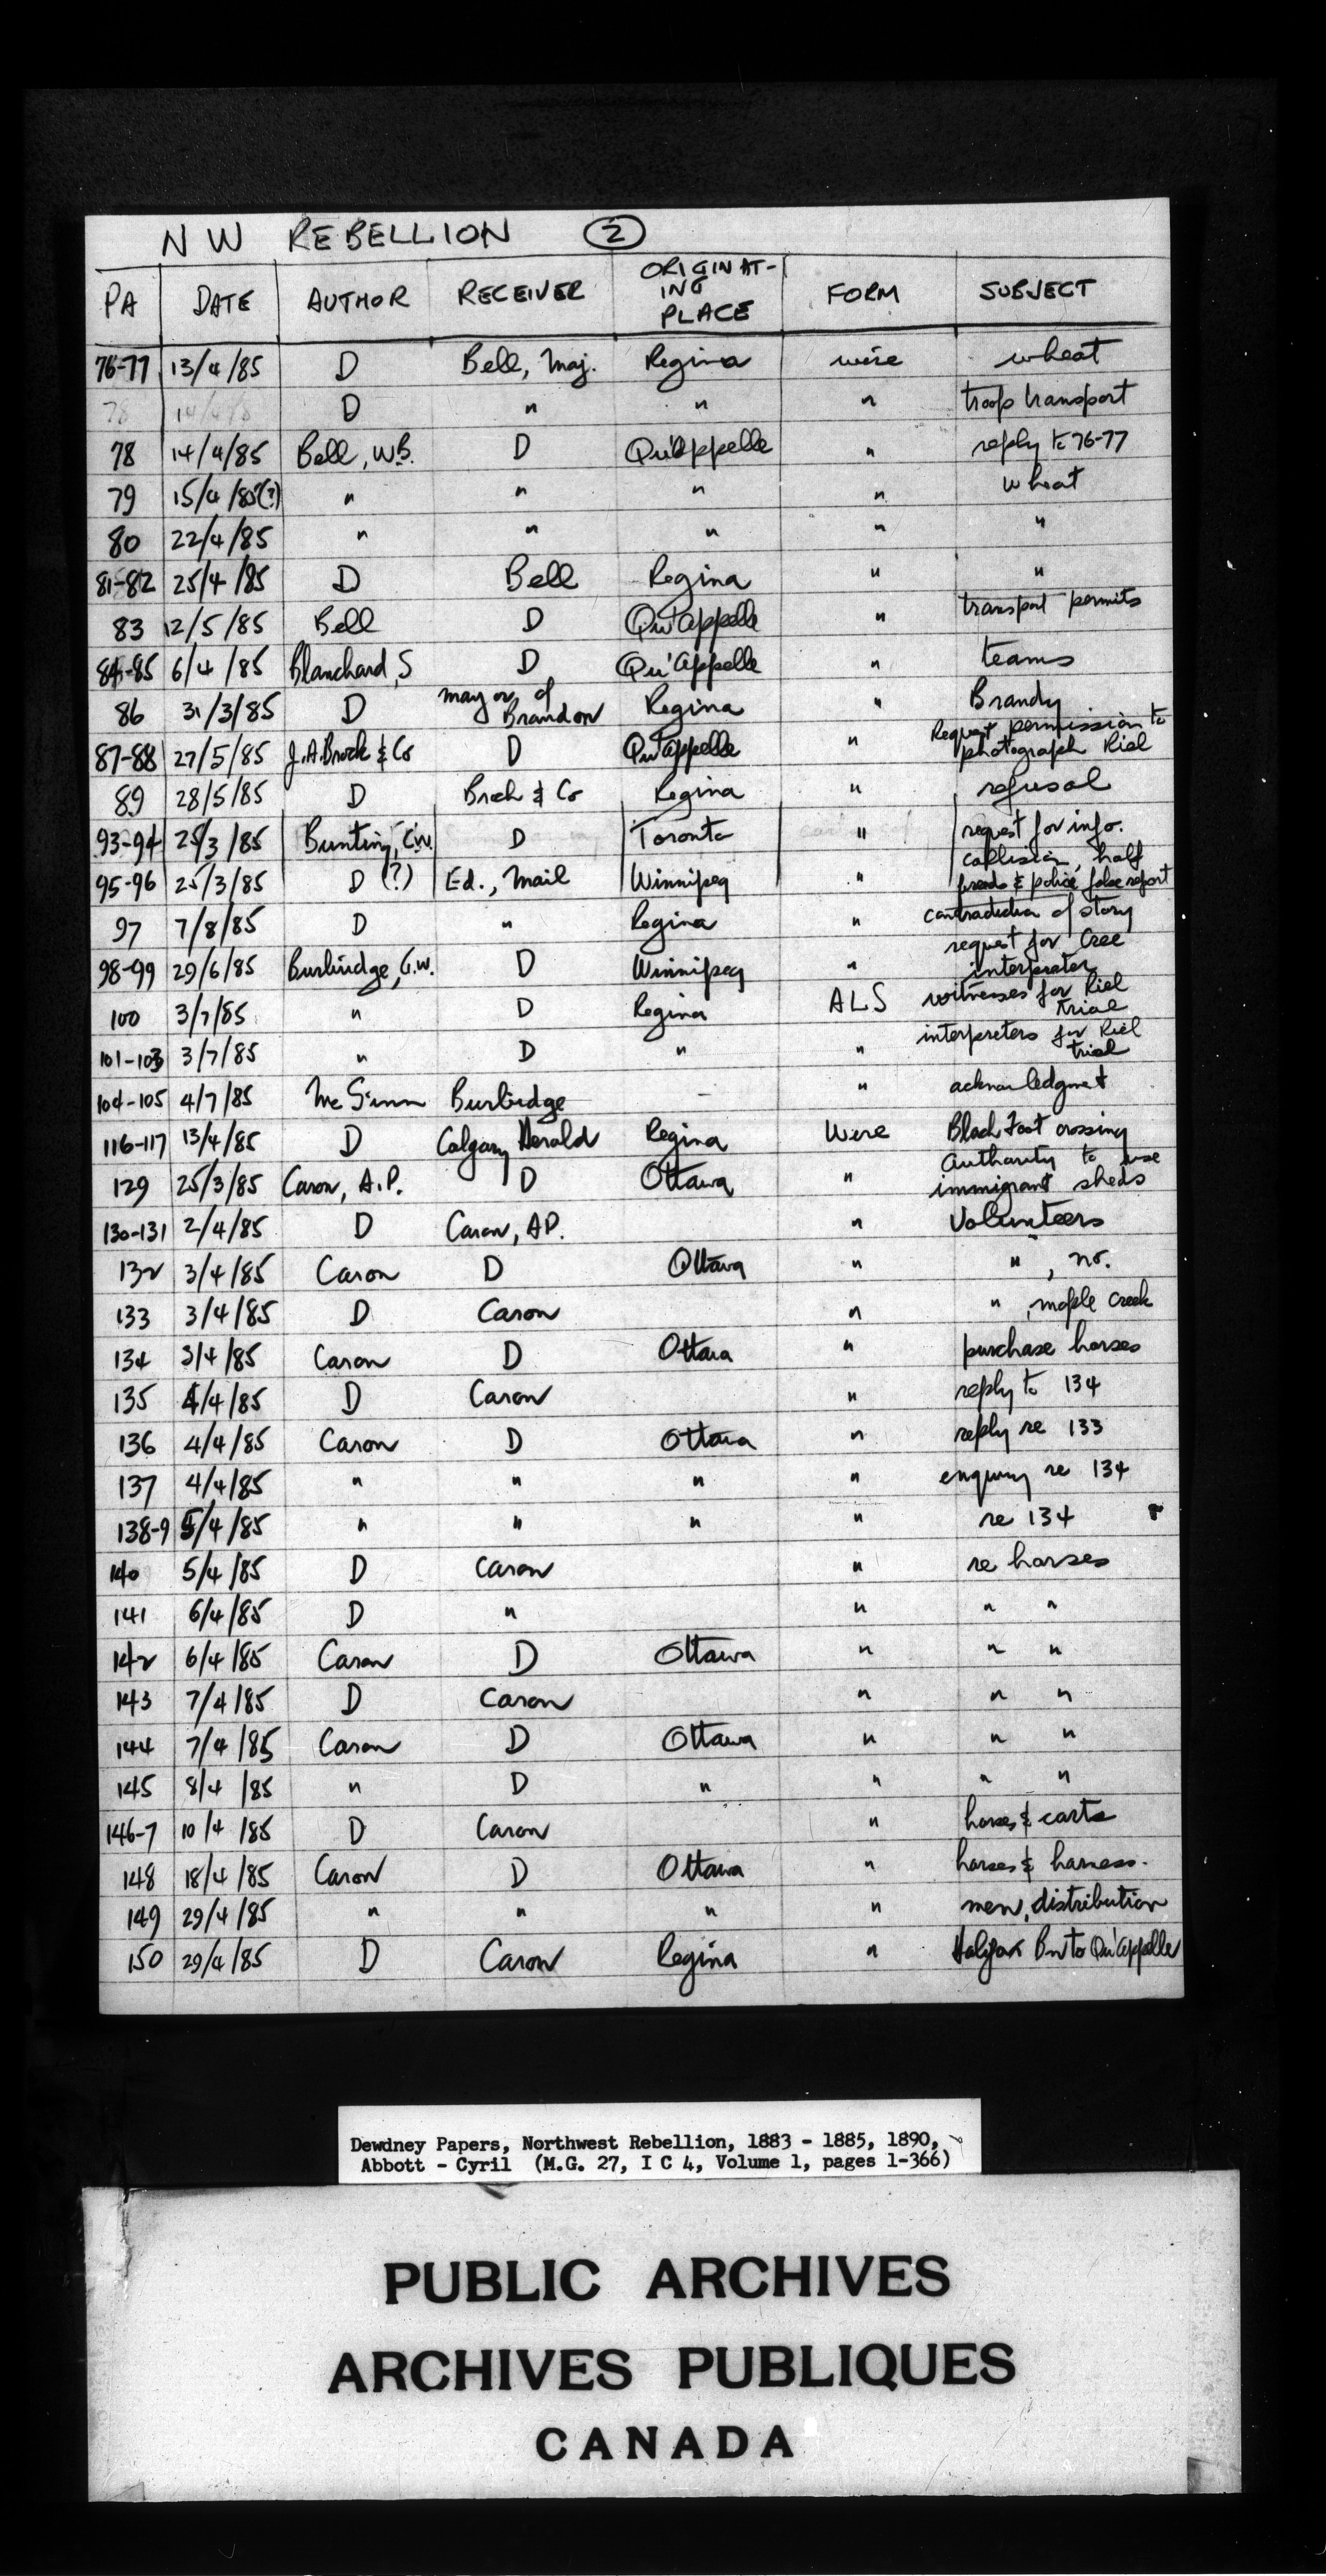 NW REBELLION 2
PA DATE AUTHOR RECEIVER ORIGINAT-ING PLACE FORM SUBJECT
76-77 13/4/85 D Bell, Maj. Regina wire wheat
78 14/4/8 D " " " troop transport
78 14/4/85 Bell, W.B. D Qu'Appelle " reply to 76-77
79 15/4/85(?) " " " " wheat
80 22/4/85 " " " " "
81-82 25/4/85 D Bell Regina " "
83 12/5/85 Bell D Qu'Appelle " transport permits
84-85 6/4/85 Blanchard, S D Qu'Appelle " teams
86 31/3/85 D mayor of Brandon Regina " Brandy
87-88 27/5/85 J.A. Brock & Co D Qu'Appelle " Request permission to photograph Riel
89 28/5/85 D Brock & Co Regina " refusal
93-94 25/3/85 Bunting, C.W. D Toronto " request for info.
95-96 25/3/85 D (?) Ed., Mail Winnipeg " collision, half breeds & police, false report
97 7/8/85 D " Regina " contradiction of story
98-99 29/6/85 Burbidge, G.W. D Winnipeg " request for Cree interpreter
100 3/7/85 " D Regina ALS witnesses for Riel trial
101-103 3/7/85 " D " " interpreters for Riel trial
104-105 4/7/85 Burbidge - " acknowledgment
116-117 13/4/85 D Calgary Herald Regina Wire Blackfoot crossing
129 25/3/85 Caron, A.P. D Ottawa " Authority to use immigrant sheds
130-131 2/4/85 D Caron, AP. " Volunteers
132 3/4/85 Caron D Ottawa " ", no.
133 3/4/85 D Caron " ", maple Creek
134 3/4/85 Caron D Ottawa " purchase horses
135 4/4/85 D Caron " reply to 134
136 4/4/85 Caron D Ottawa " reply re 133
137 4/4/85 " " " " enquiry re 134
138-9 5/4/85 " " " " re 134
140 5/4/85 D Caron " re horses
141 6/4/85 D " " " "
142 6/4/85 Caron D Ottawa " " "
143 7/4/85 D Caron " " "
144 7/4/85 Caron D Ottawa " " "
145 8/4/85 " D " " " "
146-7 10/4/85 D Caron " horses & carts
148 18/4/85 Caron D Ottawa " horses & harness.
149 29/4/85 " " " " men, distribution
150 29/4/85 D Caron Regina " Halifax Bn to Qu'Appelle
Dewdney Papers, Northwest Rebellion, 1883 - 1885, 1890,
Abbott - Cyril (M.G. 27, I C 4, Volume 1, pages 1-366)
PUBLIC ARCHIVES
ARCHIVES PUBLIQUES
CANADA